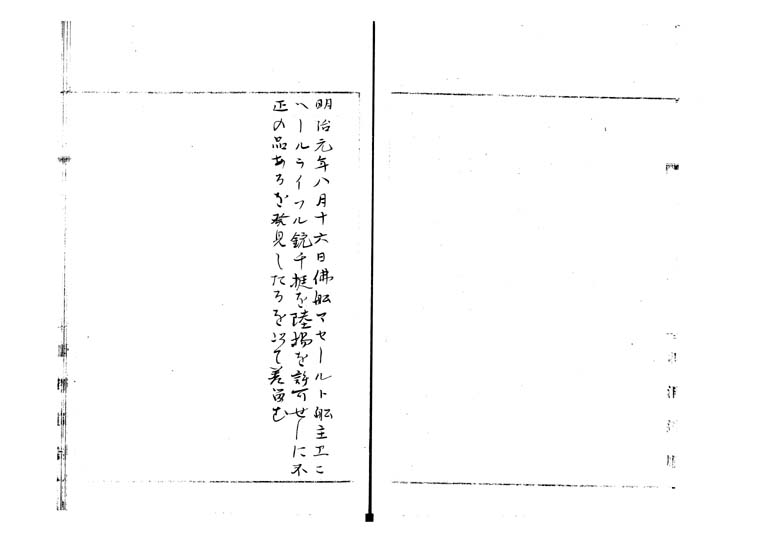 明治元年八月十六日佛船マセールト船主エニ
ヘールライフル銃千挺を陸揚を許可せしに不
正の品あるを発見したるを以て差留む